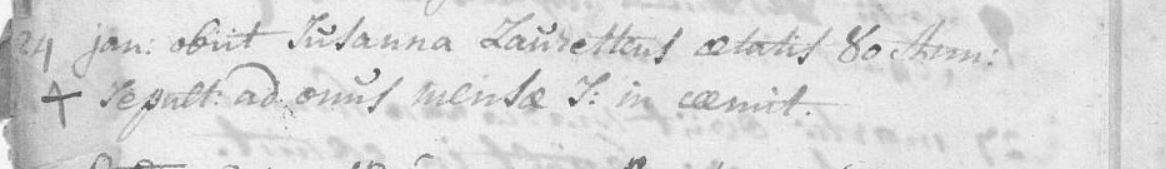 24 jan: obiit Susanna Laurettens ætatis 80 Ann:
+ Sepult: ad onus mensæ S: in cæmit.